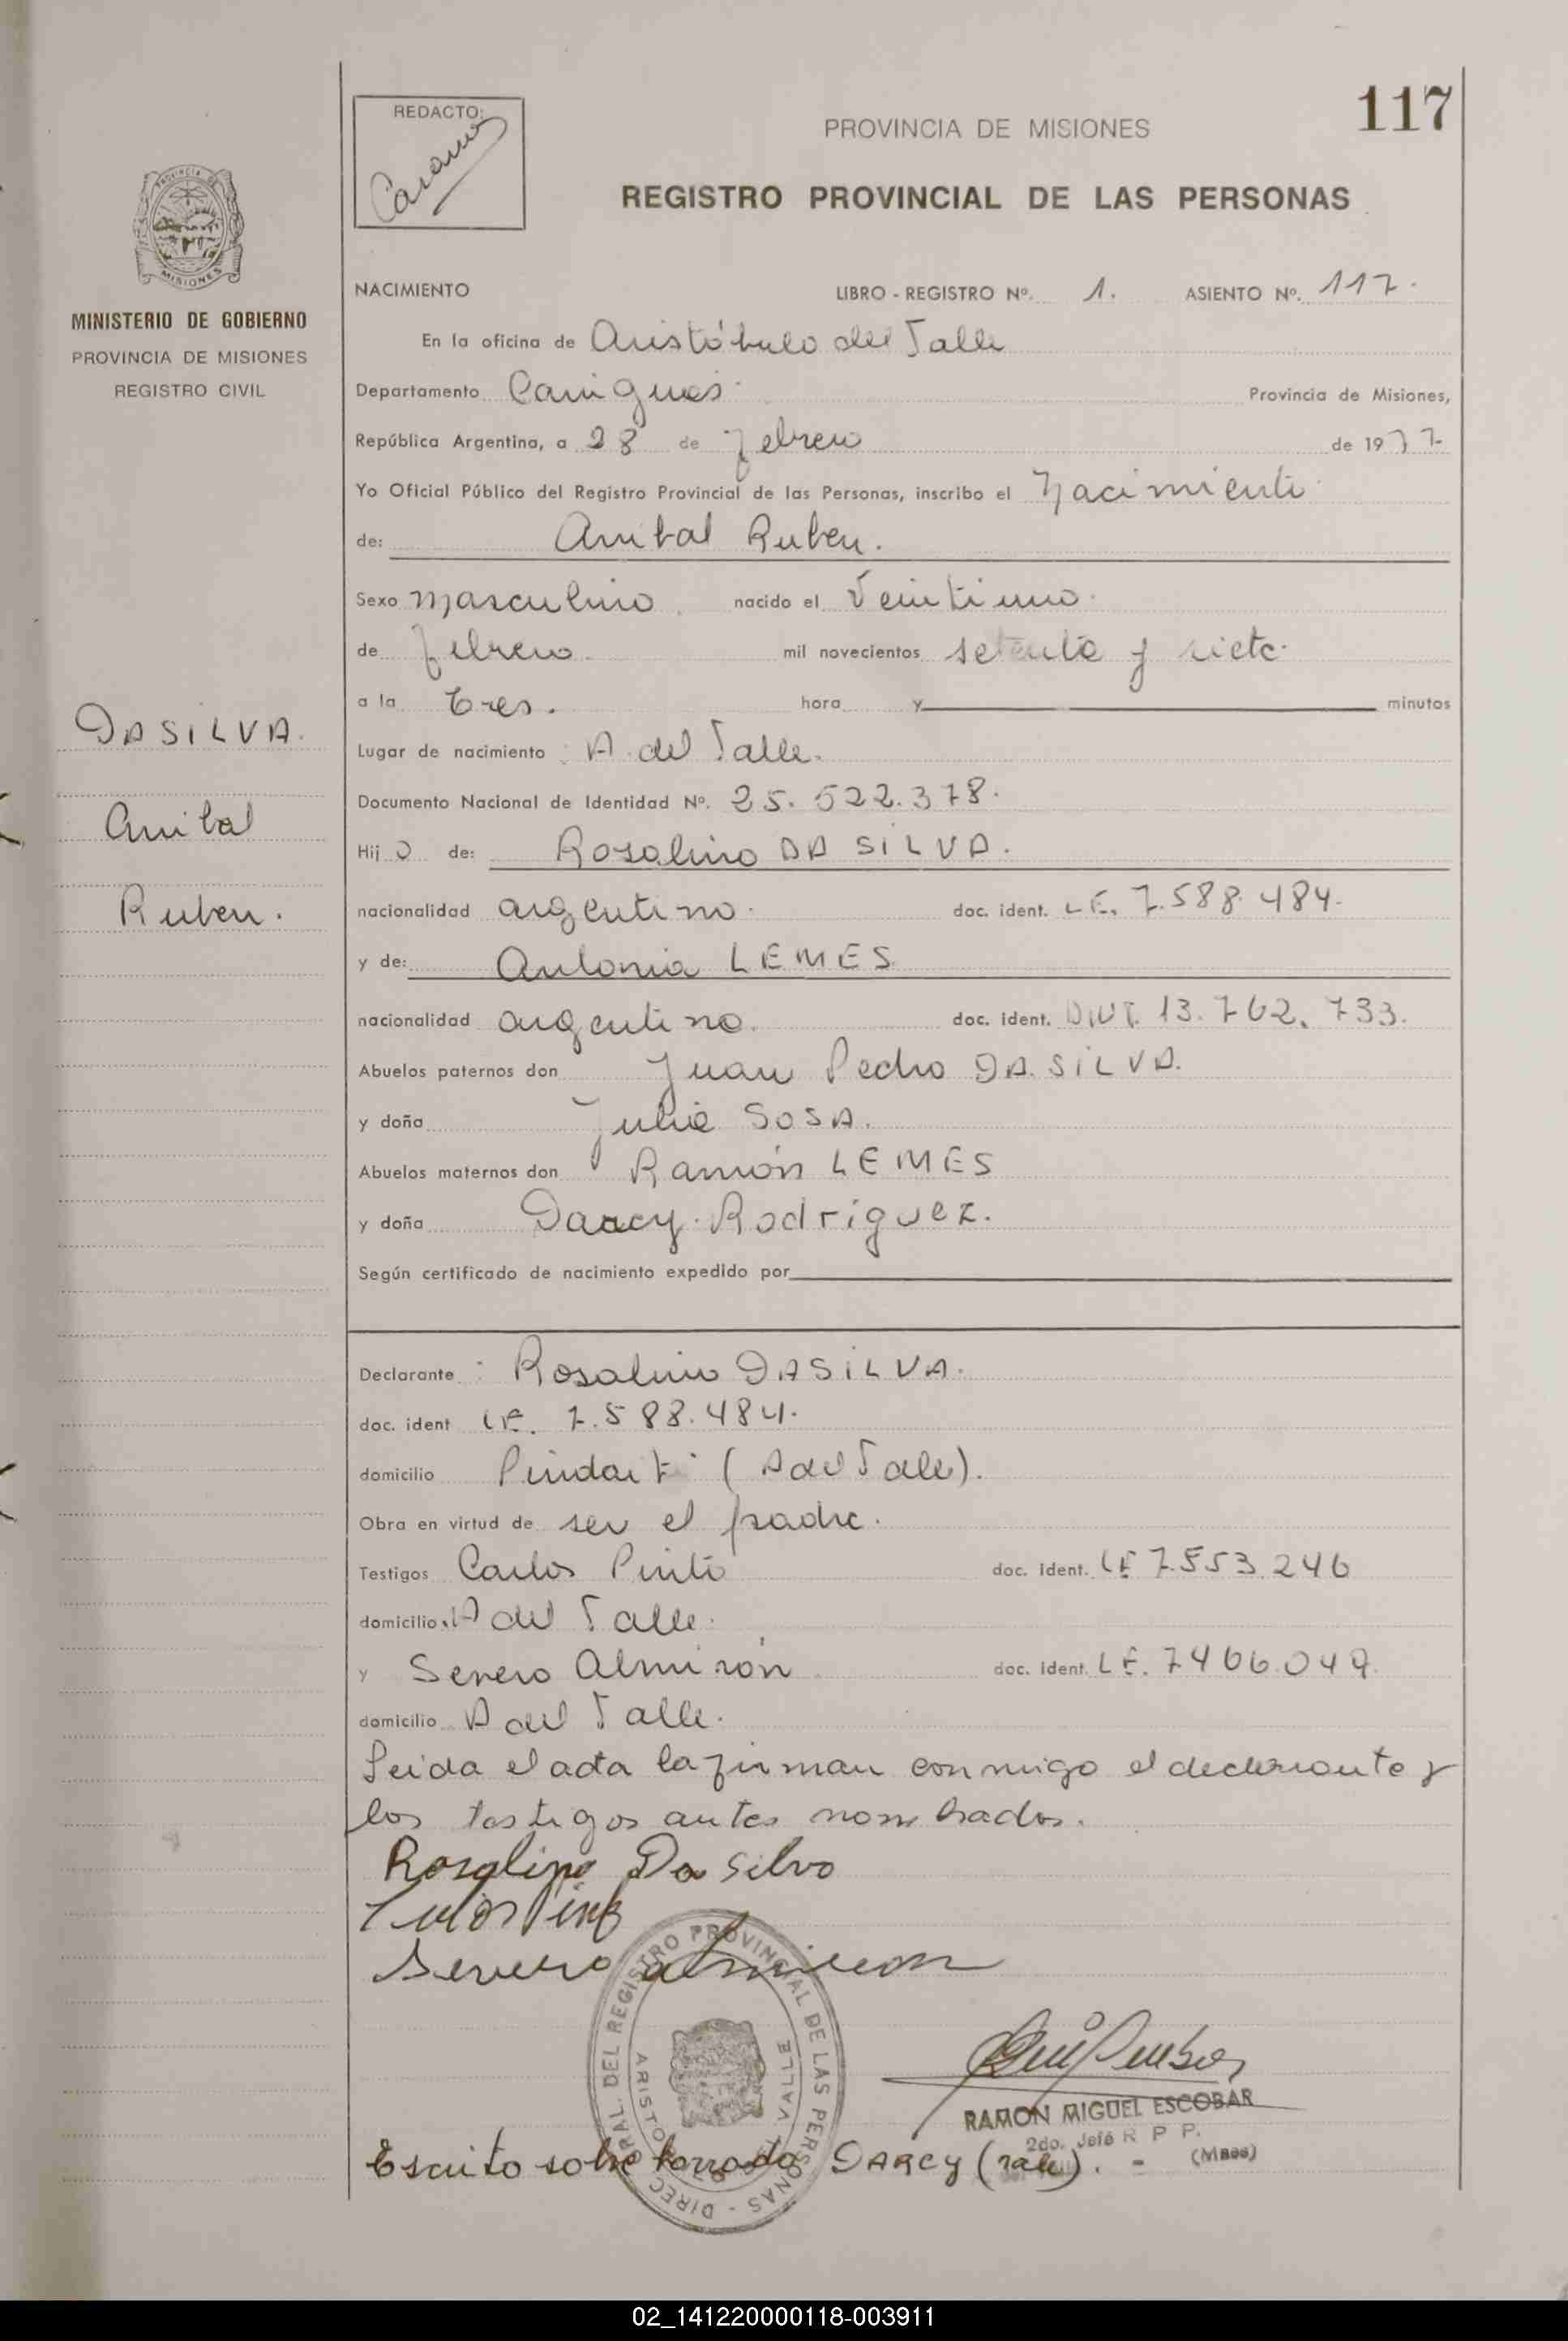 117
REDACTO:
PROVINCIA DE MISIONES
REGISTRO PROVINCIAL DE LAS PERSONAS
MISIONES
MINISTERIO DE GOBIERNO
PROVINCIA DE MISIONES
REGISTRO CIVIL
NACIMIENTO LIBRO - REGISTRO Nº. 1. ASIENTO Nº. 117.
En la oficina de Aristóbulo del Valle
Departamento Cainguas Provincia de Misiones,
República Argentina, a 28 de febrero de 1977
Yo Oficial Público del Registro Provincial de las Personas, inscribo el Nacimiento
de: Anibal Ruben.
Sexo masculino. nacido el Veintiuno
de febrero. mil novecientos setenta y siete.
a la tres. hora y minutos
DASILVA.
Lugar de nacimiento A. del Valle.
Documento Nacional de Identidad Nº. 25.522.378.
Anibal
Hijo de: Rosalino DA SILVA.
Ruben.
nacionalidad argentino. doc. ident. L.E. 7.588.484.
y de: Antonia LEMES
nacionalidad argentino. doc. ident. D.N.I. 13.762.733.
Abuelos paternos don Juan Pedro DA. SILVA.
y doña Julia SOSA.
Abuelos maternos don Ramón LEMES
y doña Darcy. Rodriguez.
Según certificado de nacimiento expedido por
Declarante: Rosalino DASILVA.
doc. ident L.E. 7.588.484.
domicilio Pindaiti (A del Valle).
Obra en virtud de ser el padre.
Testigos Carlos Pinto doc. ident. LE 7.553.246
domicilio. A del Valle.
y Severo Almirón doc. ident. LE. 7466.049.
domicilio A del Valle.
Leida el acta la firman conmigo el declarante y
los testigos antes nombrados.
Rosalino Da Silva
Severo almiron
DIREC GRAL. DEL REGISTRO PROVINCIAL DE LAS PERSONAS
RAMON MIGUEL ESCOBAR
2do. Jefe R P P.
(Mnes)
Escrito sobre borrado DARCY (vale). -
02_141220000118-003911